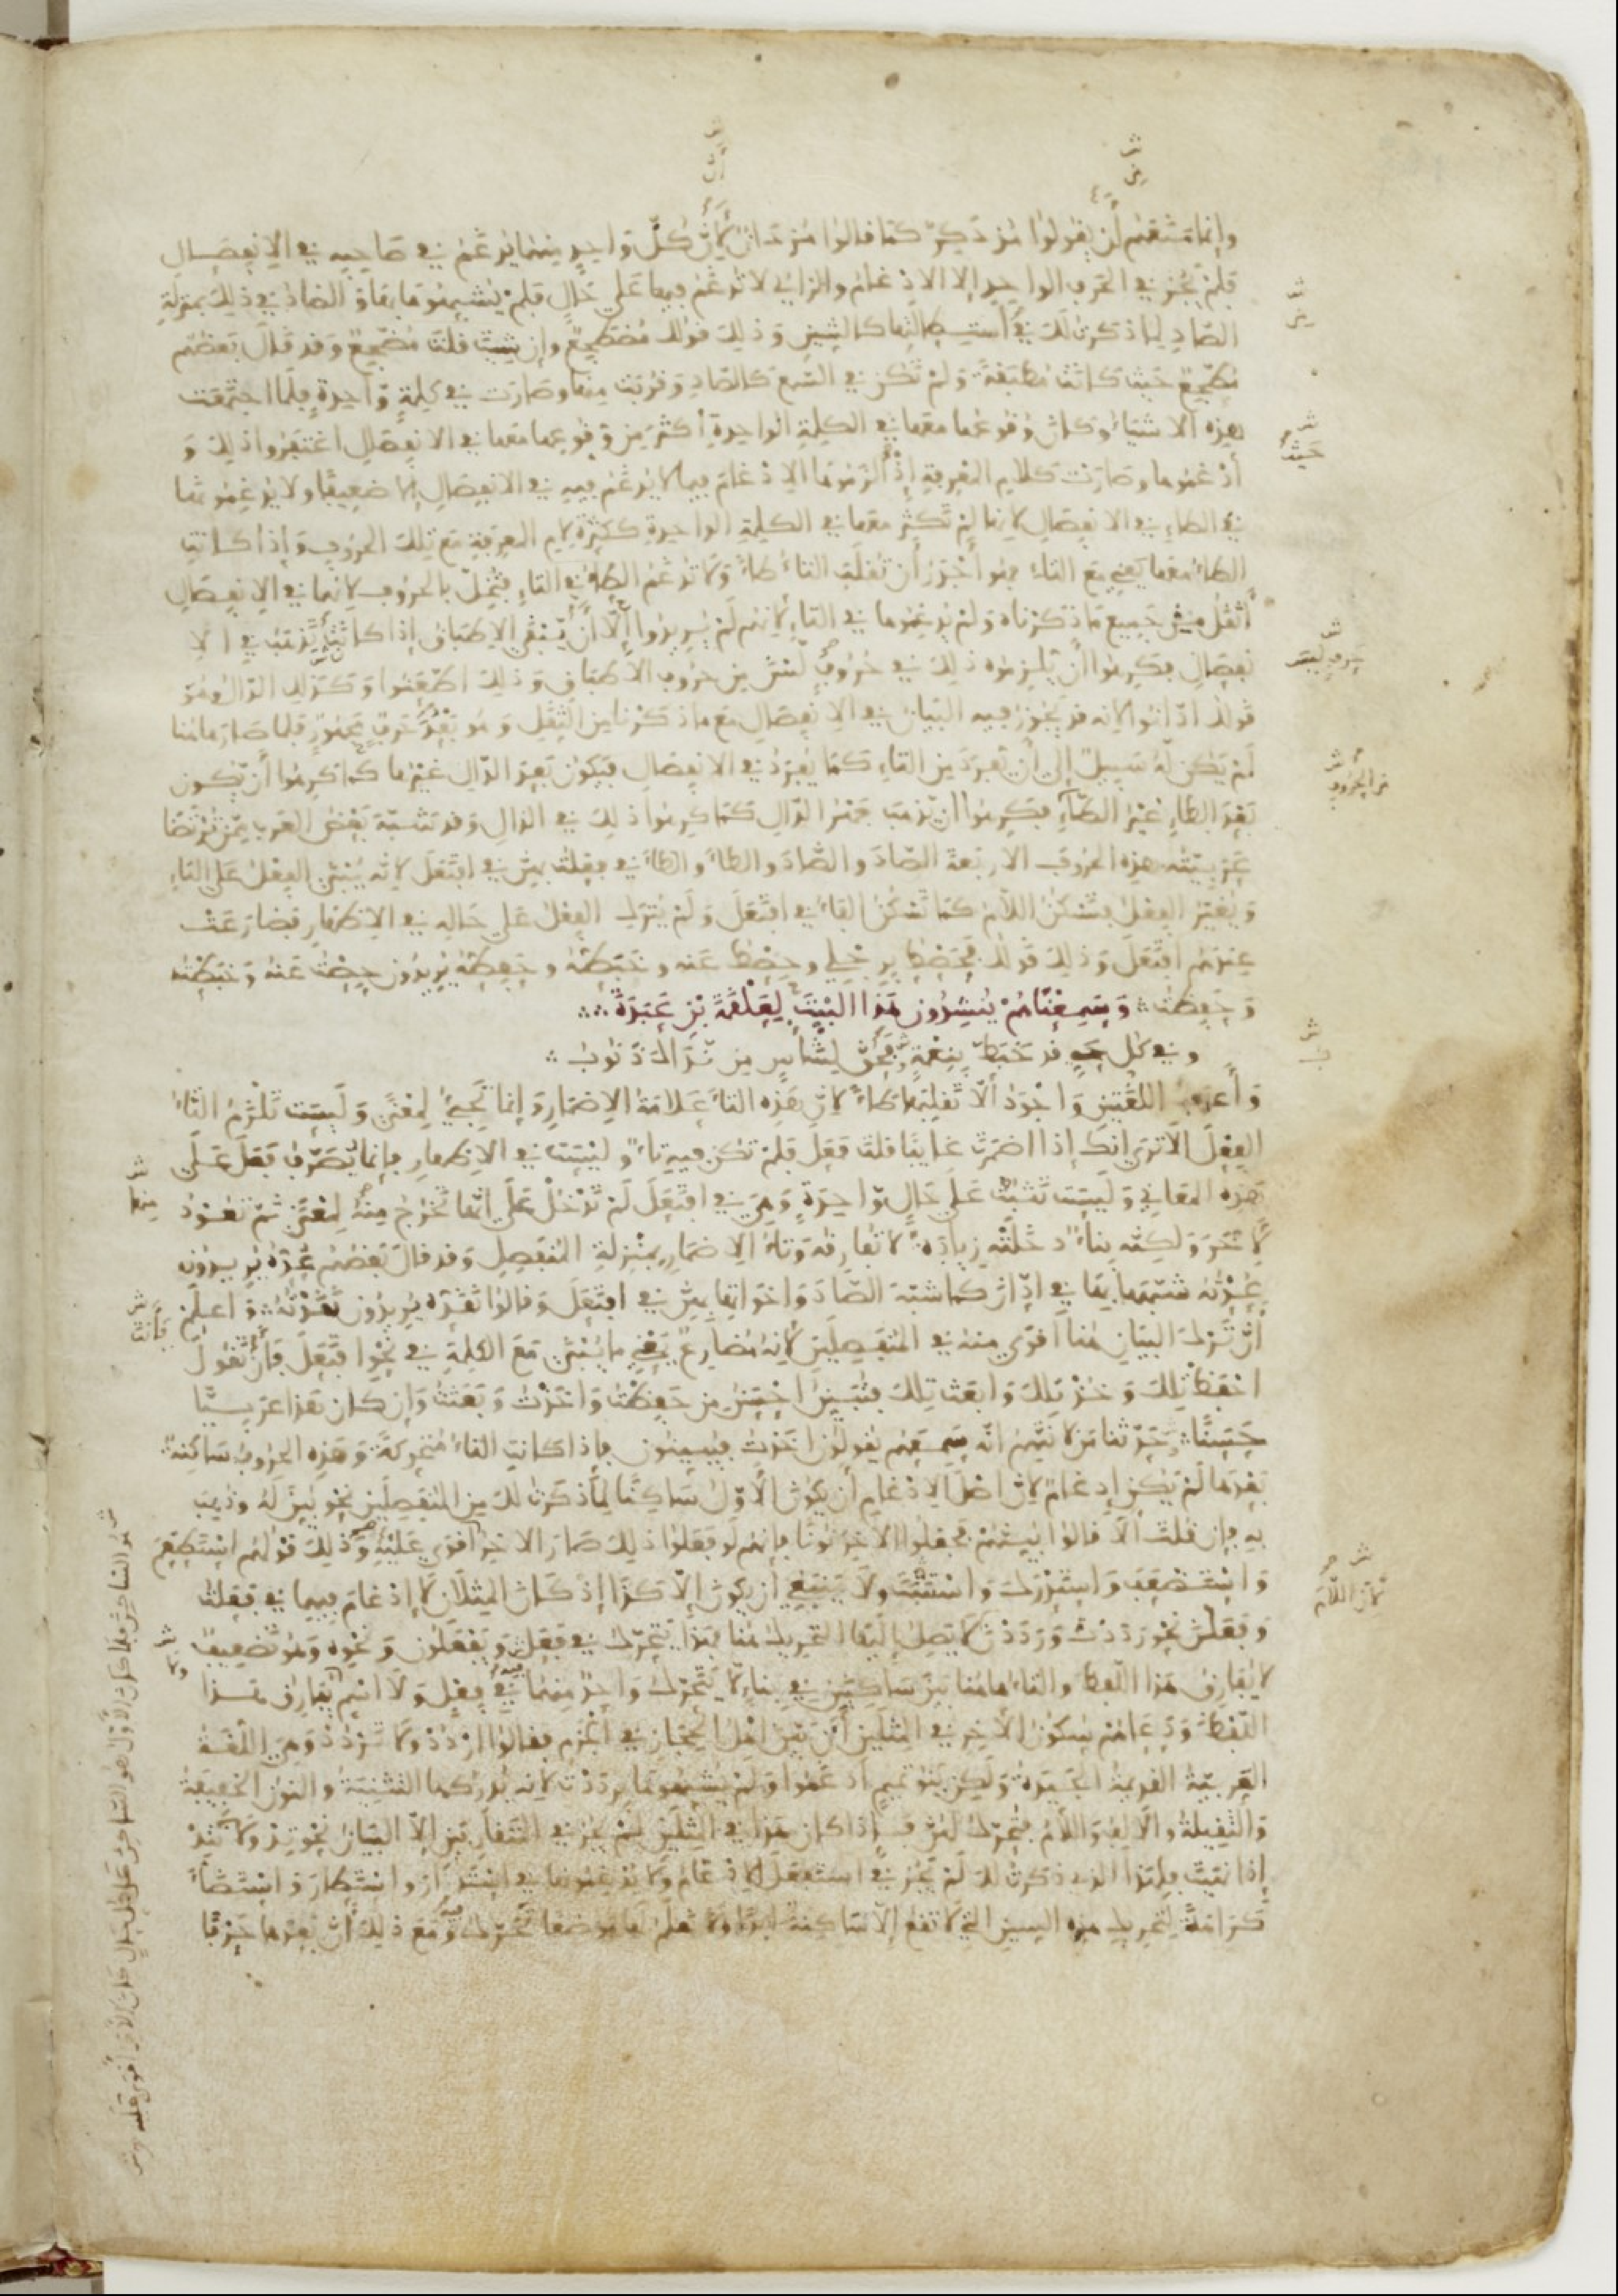 وإنما منعهم أن يقولوا مذدكر كما قالوا مزدان لأن كل واحد منهما يدغم في صاحبه في الانفصال
فلم يجز في الحرف الواحد إلا الإدغام والزاي لا تدغم فيها على حال فلم يشبهوها بها والضاد في ذلك بمنزلة
الصاد لما ذكرت لك في استطالتها كالشين وذلك قولك مضطجع وإن شئت قلت مضجع وقد قال بعضهم
مطجع حيث كانت مطبقة ولم تكن في السمع كالضاد وقربت منها وصارت في كلمة واحدة فلما اجتمعت
هذه الأشياء وكان وقوعها معها في الكلمة الواحدة أكثر من وقوعها معها في الانفصال اغتفروا ذلك و
أدغموها وصارت كلام المعرفة إذ ألزموها الإدغام فيما لا يدغم فيه في الانفصال إلا ضعيفا ولا يدغمونها
في الطاء في الانفصال لأنها لم تكثر معها في الكلمة الواحدة ككثرة لام المعرفة مع تلك الحروف وإذا كانت
الطاء معها يعني مع التاء فهو أجدر أن تقلب التاء طاء ولا تدغم الطاء في التاء فتخل بالحرف لأنها في الانفصال
أثقل من جميع ما ذكرناه ولم يدغموها في التاء لأنهم لم يريدوا إلا أن يبقى الإطباق إذ كان يذهب في الا
نفصال فكرهوا أن يلزموه ذلك في حروف ليس من حروف الإطباق وذلك اطعنوا وكذلك الدال وهو
قولك ادانوا لأنه قد يجوز فيه البيان في الانفصال مع ما ذكرنا من الثقل وهو بعد حرف مجهور فلما صار هاهنا
لم يكن له سبيل إلى أن يفرد من التاء كما يفرد في الانفصال فيكون بعد الدال غيرها كما كرهوا أن يكون
بعد الطاء غير الطاء فكرهوا أن يذهب جهر الدال كما كرهوا ذلك في الذال وقد شبه بعض العرب ممن ترضا
عربيته هذه الحروف الأربعة الصاد والضاد والطاء والظاء في فعلت بهن في افتعل لأنه يبنى الفعل على التاء
ويغير الفعل فتسكن اللام كما تسكن الفاء في افتعل ولم يترك الفعل على حاله في الإظهار فضارعت
عندهم افتعل وذلك قولك فحصط برجلي وحصط عنه وخبطه وحفطه يريدون حصت عنه وخبطته
وحفظته وسمعناهم ينشدون هذا البيت لعلقمة بن عبدة
وفي كل حي قد خبط بنعمة فحق لشأس من نداك ذنوب
وأعرب اللغتين وأجود ألا تقلبها طاء لأن هذه التاء علامة الإضمار وإنما تجيء لمعنى وليست تلزم التاء
الفعل ألا ترى أنك إذا أضمرت غايبا قلت فعل فلم تكن فيه تاء وليست في الإظهار فإنما تصرف فعل على
هذه المعاني وليست تثبت على حال واحدة وهي في افتعل لم تدخل على أنها تخرج منه لمعنى ثم تعود
لآخر ولكنه بناء دخلته زيادة لا تفارقه وتاء الإضمار بمنزلة المنفصل وقد قال بعضهم عده يريدون
عدته شبهها بها في ادان كما شبه الصاد وأخواتها بهن في افتعل وقالوا نقده يريدون نقدته واعلم
أن ترك البيان هنا أقوى منه في المنفصلين لأنه مضارع يعني ما يبنى مع الكلمة في نحو افتعل فأن تقول
احفظ تلك وخذ تلك وابعث تلك فتبين أحسن من حفظت وأخذت وبعثت وإن كان هذا عربيا
حسنا حدثنا من لا نتهم أنه سمعهم يقولون أخذت فيبينون فإذا كانت التاء متحركة وهذه الحروف ساكنة
بعدها لم يكن إدغام لأن أصل الإدغام أن يكون الأول ساكنا لما ذكرت لك من المنفصلين نحو بين له وذهب
به فإن قلت ألا قالوا بينهم فجعلوا الآخر نونا فإنهم لو فعلوا ذلك صار الآخر أقوى عليه وذلك قولهم استطعم
واستضعف واستدرك واستثبت ولا ينبغي أن يكون إلا كذا إذ كان المثلان لا إدغام فيهما في فعلت
وفعلن نحو رددت ورددن لا يصل إليها التحريك هنا فهذا يتحرك في فعل ويفعلون ونحوه وهو تضعيف
لا يفارق هذا اللفظ والتاء هاهنا بين ساكنين في بناء لا يتحرك واحد منهما في فعل ولا اسم يفارق هذا
اللفظ ودعاهم سكون الآخر في المثلين أن بين أهل الحجاز في الجزم فقالوا اردد ولا تردد وهي اللغة
العربية القديمة الجيدة ولكن بنو تميم أدغموا ولم يشبهوها برددت لأنه يدركها التثنية والنون الخفيفة
والثقيلة والألف واللام فتحرك لهن فإذا كان هذا في المثلين لم يجز في المتقاربين إلا البيان نحو تد ولا تتد
إذا نهيت فلهذا الذي ذكرت لك لم يجز في استفعل الإدغام ولا يدغمونها في استدار واستطار واستضاء
كراهة لتحريك هذه السين التي لا تقع إلا ساكنة أبدا ولا نعلم لها موضعا تحرك فيه ومع ذلك أن بعدها حرفا